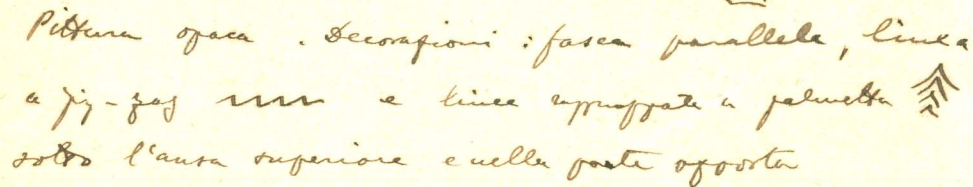 Pittura opaca. Decorazioni: fasce parallele, linea
a zig-zag e linee raggruppate a palmetta
sotto l'ansa superiore e nella parte opposta